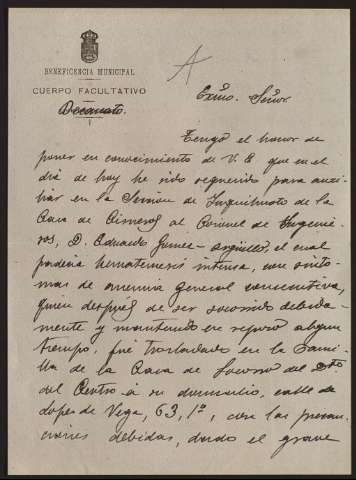 BENEFICENCIA MUNICIPAL
CUERPO FACULTATIVO
Decanato.
A
Excmo. Señor
Tengo el honor de
poner en conocimiento de V. E que en el
dia de hoy he sido requerido para auxi-
liar en la Sección de de la
Casa de Cisneros al Coronel de Ingenie-
ros, D. Eduardo Gumea-Argüello, el cual
padecia hematemesis intensa, con sinto-
mas de anemia general consecutiva,
quien después de ser socorrido debida-
mente y mantenido en reposo algun
tiempo, fué trasladado en la Cami-
lla de la Casa de Socorro del
del Centro á su domicilio, calle de
Lope de Vega, 63, 1º, con las precau-
ciones debidas, dado el grave